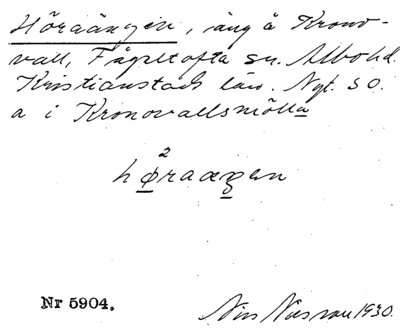 Höraängen, äng å Krono-
vall, Fågeltofta sn. Albo hd.
Kristianstads län. Nyt. S O.
a i Kronovallsmölla
2
høraaꞬen
Nr 5904.
Nils 1930.